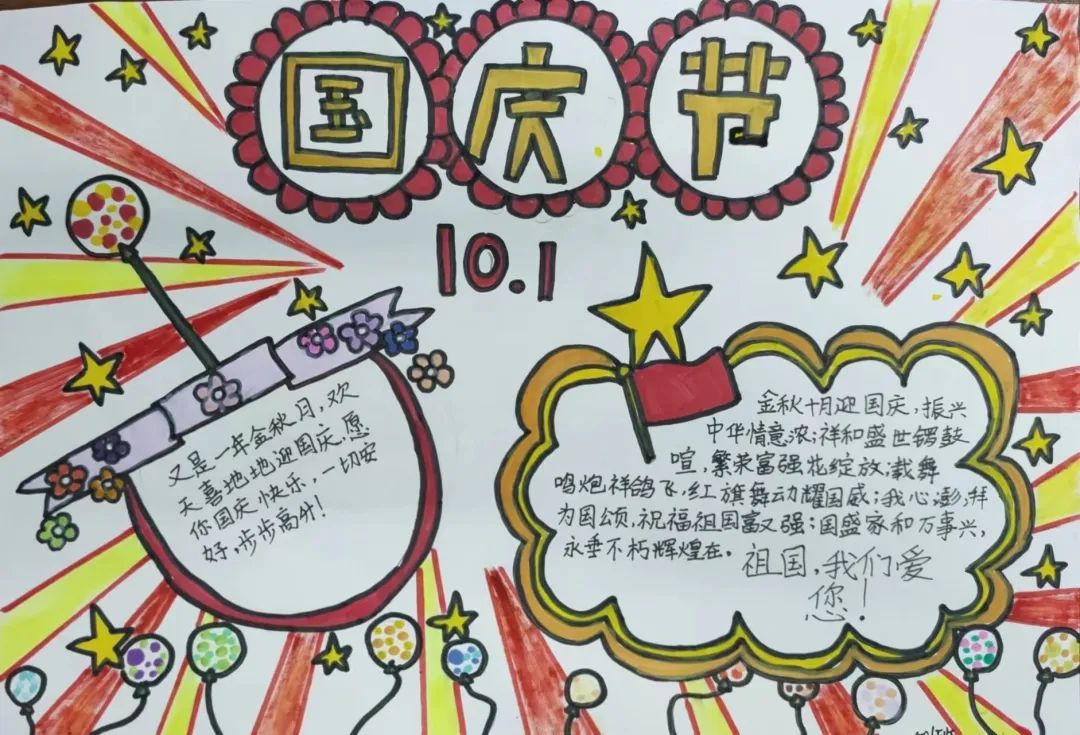 国庆节
10.1
又是一年金秋月,欢
天喜地地迎国庆,愿
你国庆快乐,一切安
好,步步高升!
金秋十月迎国庆,振兴
中华情意浓;祥和盛世锣鼓
喧,繁荣富强花绽放;载舞
鸣炮祥鸽飞,红旗舞动耀国威;我心澎,拜
为国颂,祝福祖国富又强;国盛家和万事兴,
永垂不朽辉煌在。
祖国,我们爱
您!